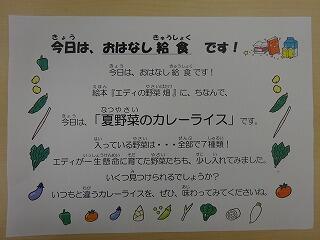 今日は、おはなし給食 です！
今日は、おはなし給食です！
絵本『エディの野菜畑』に、ちなんで、
今日は、「夏野菜のカレーライス」です。
入っている野菜は・・・全部で７種類！
エディが一生懸命に育てた野菜たちも、少し入れてみました。
いくつ見つけられるでしょうか？
いつもと違うカレーライスを、ぜひ、味わってみてくださいね。